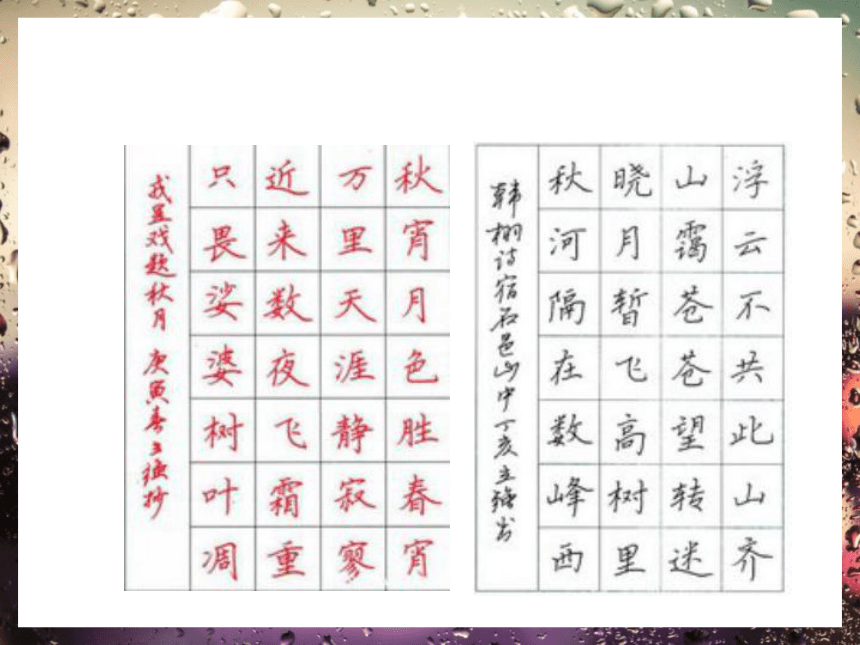 秋宵月色胜春宵
万里天涯静寂寥
近来数夜飞霜重
只畏娑婆树叶凋
戎昱戏题秋月 庚寅春立强抄
浮云不共此山齐
山霭苍苍望转迷
晓月暂飞高树里
秋河隔在数峰西
韩翃诗宿石邑山中丁亥立强书